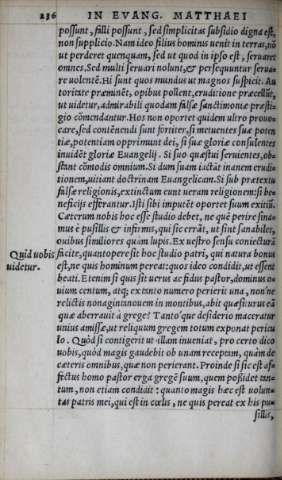 236 IN EVANG. MATTHAEI
possunt, falli possunt, sed simplicitas subsidio digna est,
non supplicio. Nam ideo filius hominis uenit in terras, nõ
ut perderet quenquam, sed ut quod in ipso est, seruaret
omnes. Sed multi seruari nolunt, & persequuntur seruare
uolentẽ. Hi sunt quos mundus ut magnos suspicit. Au
toritate præminẽt, opibus pollent, eruditione præcellũt,
ut uidetur, admirabili quodam falsæ sanctimoniæ præsti-
gio cõmendantur. Hos non oportet quidem ultro prouo-
care, sed contẽnendi sunt fortiter, si metuentes suæ poten
tiæ, potentiam opprimunt dei, si suæ gloriæ consulentes
inuidẽt gloriæ Euangelij. Si suo quæstui seruientes, ob-
stant cõmodis omnium. Si dum suam iactãt inanem erudi-
tionem, uitiant doctrinam Euangelicam. Si sub prætextu
falsæ religionis, extinctum eunt ueram religionem: si be-
neficijs efferantur. Isti sibi imputẽt oportet suum exitiũ.
Cæterum nobis hoc esse studio debet, ne quẽ perire sina-
mus è pusillis & infirmis, qui sic errãt, ut sint sanabiles,
ouibus similiores quàm lupis. Ex uestro sensu coniecturã
Quid uobis facite, quantopere sit hoc studio patri, qui natura bonus
uidetur. est, ne quis hominum pereat: quos ideo condidit, ut essent
beati. Etenim si quis sit uerus ac fidus pastor, dominus o-
uium centum, atq; ex tanto numero perierit una, non'ne
relictis nonagintanouem in montibus, abit quæsiturus eã
quæ aberrauit à grege? Tanto'que desiderio maceratur
unius amissæ, ut reliquum gregem totum exponat pericu
lo. Quòd si contigerit ut illam inueniat, pro certo dico
uobis, quòd magis gaudebit ob unam receptam, quàm de
cæteris omnibus, quæ non perierant. Proinde si sic est af-
fectus homo pastor erga gregẽ suum, quem possidet tan-
tum, non etiam condidit: quanto magis hæc est uolun-
tas patris mei, qui est in cœlis, ne quis pereat ex his pu-
sillis,